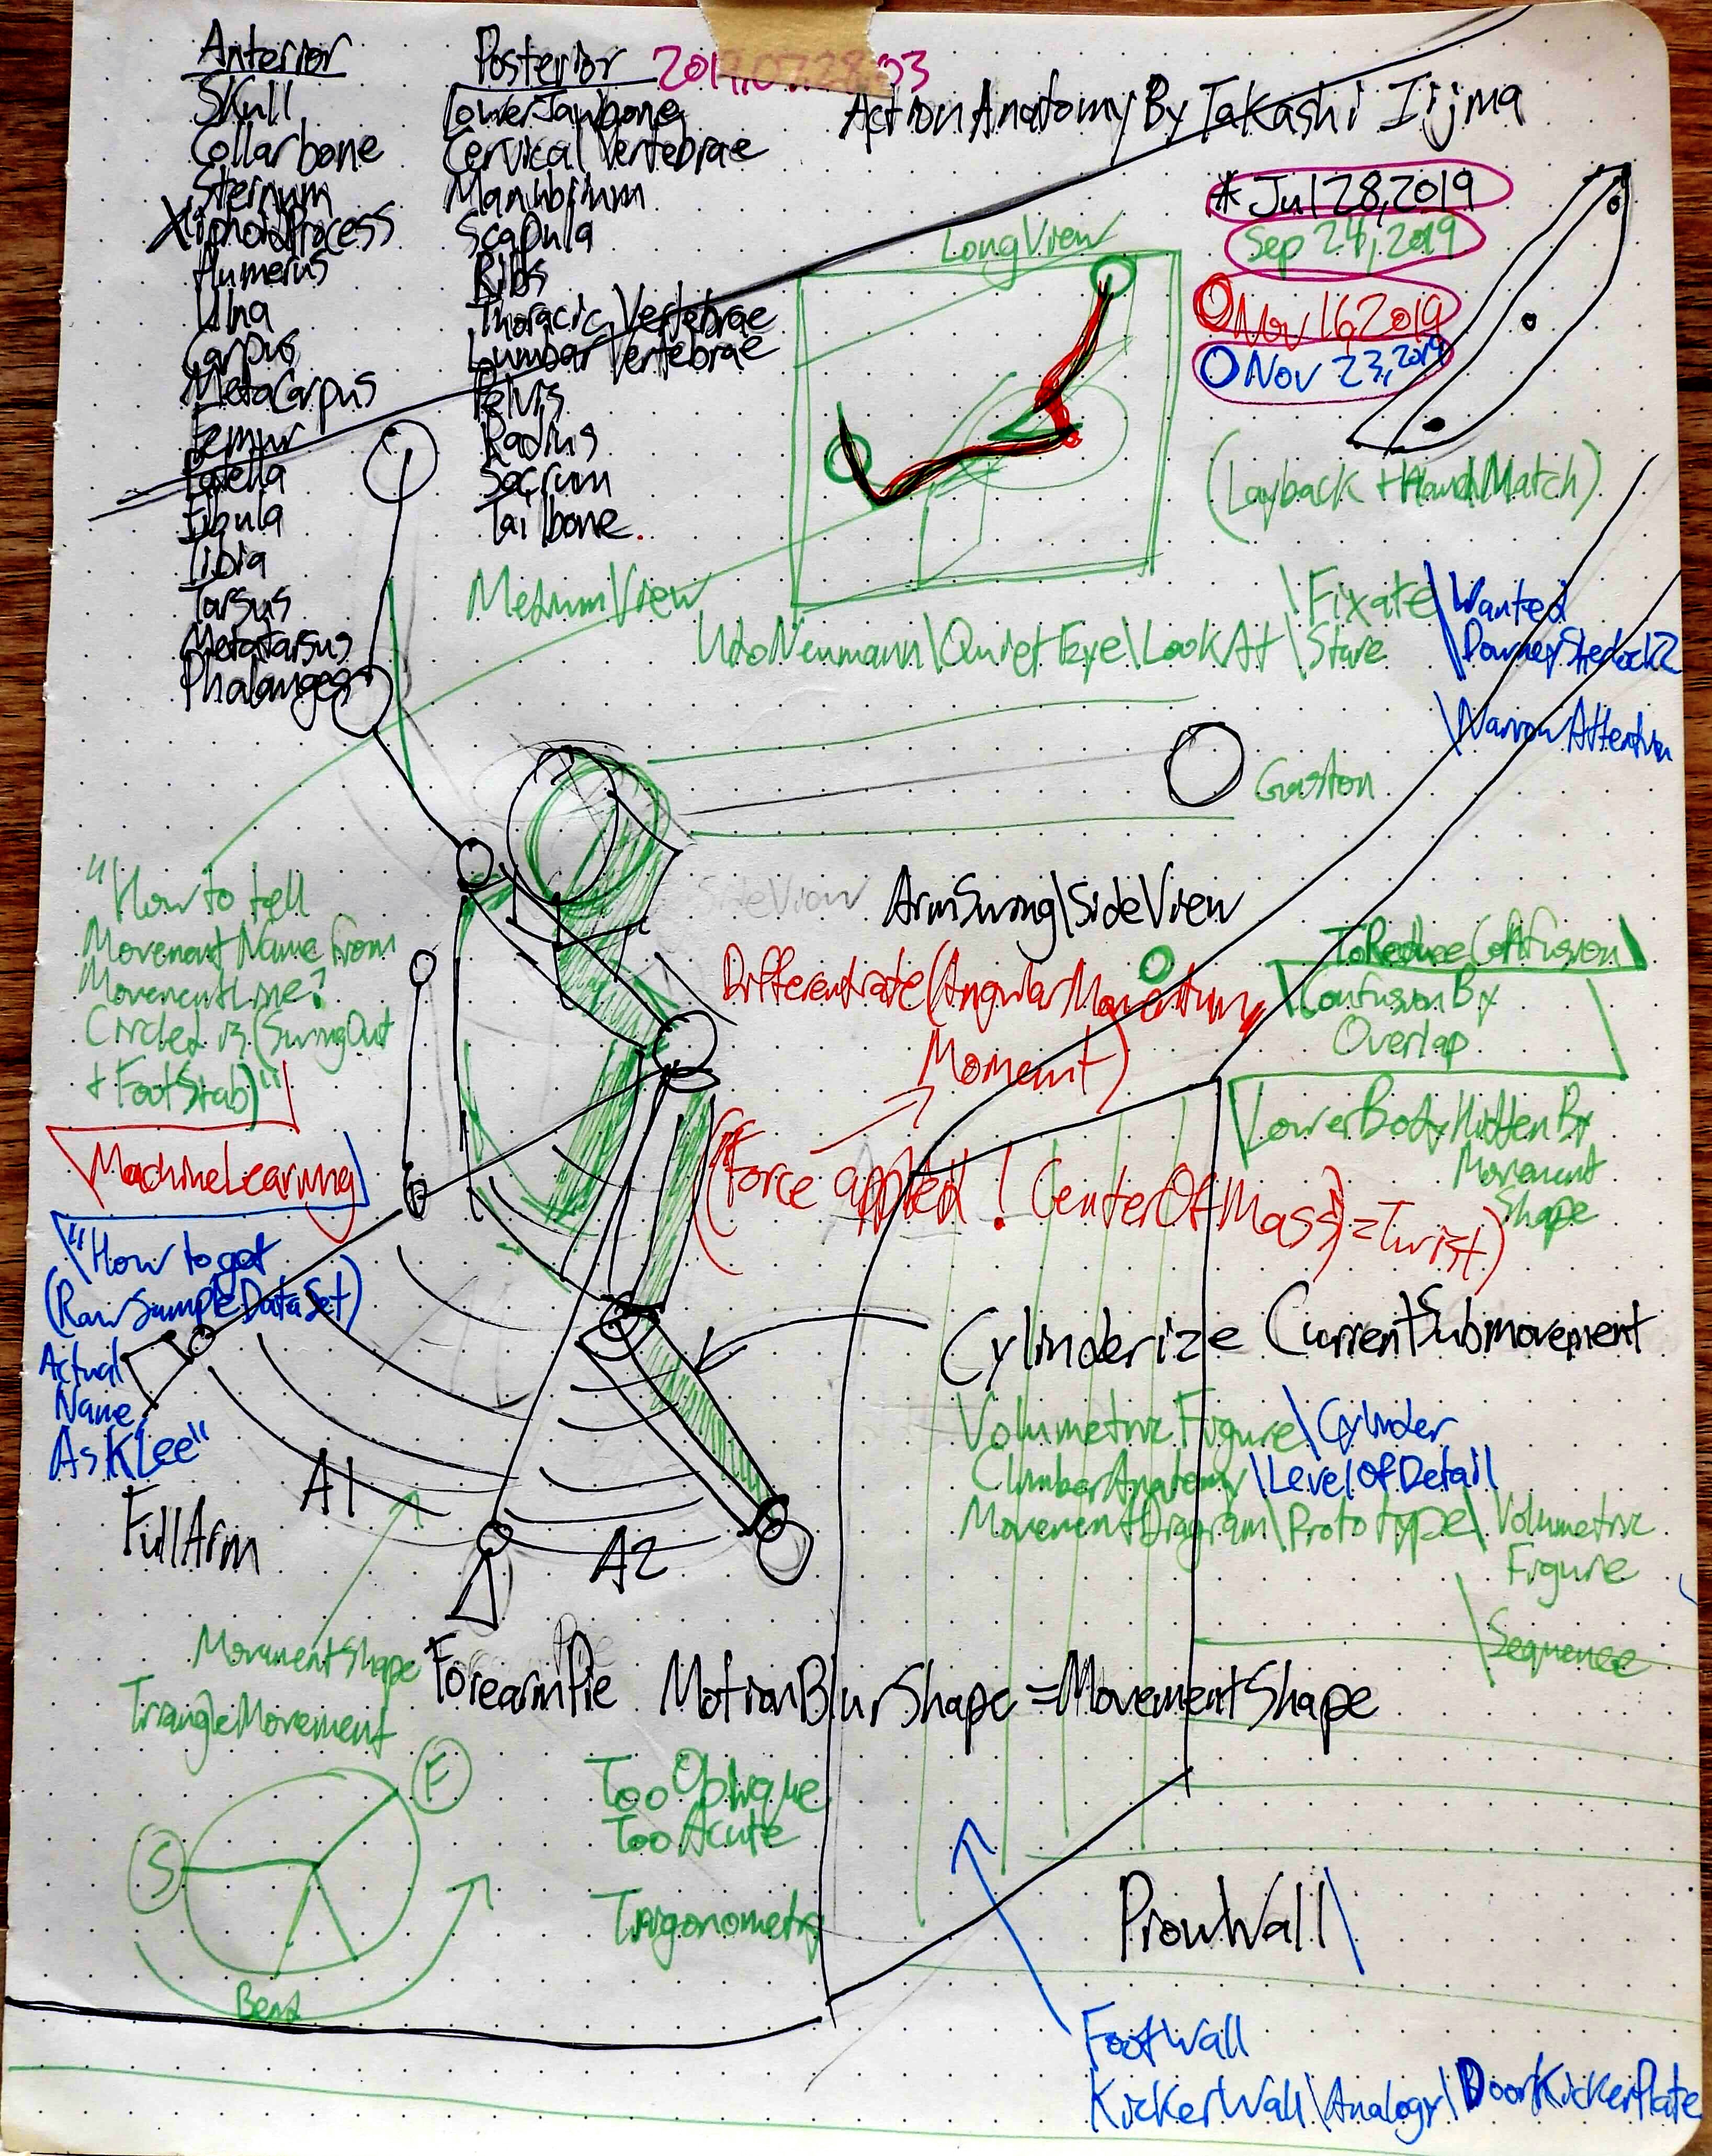 Anterior
Skull
Collarbone
Sternum
XiphoidProcess
Humerus
Ulna
Carpus
MetaCarpus
Femur
Patella
Fibula
Tibia
Tarsus
Metatarsus
Phalanges
Posterior
LowerJawbone
Cervical Vertebrae
Manubrium
Scapula
Ribs
Thoracic Vertebrae
Lumbar Vertebrae
Pelvis
Radius
Sacrum
Tailbone.
2019.07.28.03
ActionAnatomyByTakashi Iijma
*Jul 28,2019
Sep 24,2019
Nov 16,2019
Nov 23,2019
LongView
(Layback + HandMatch)
MediumView
UdoNeumann\QuietEye\LookAt\Stare
\Fixate
\Wanted
\NarrowAttention
Gaston
"How to tell
MovementName from
MovementLine?
Circled is (SwingOut
+ FootStab)"
MachineLearning
"How to get
(RawSampleDataSet)
Actual
Name,
AskLee"
SideView
ArmSwing\SideView
Differentiate(AngularMomentum,
Moment)
(Force applied ! CenterOfMass)=Twist)
ToReduceConfusion
\ConfusionBy
Overlap
\LowerBodyHiddenBy
Movement
Shape
Cylinderize CurrentSubmovement
VolumetricFigure\Cylinder
ClimberAnatomy\LevelOfDetail
MovementDiagram\Prototype\Volumetric
Figure
\Sequence
FullArm
A1
A2
MovementShape
TriangleMovement
ForearmPie
MotionBlurShape=MovementShape
S
F
Bend
TooOblique
TooAcute
Trigonometry
ProwWall\
FootWall
KickerWall\Analogy\DoorKickerPlate